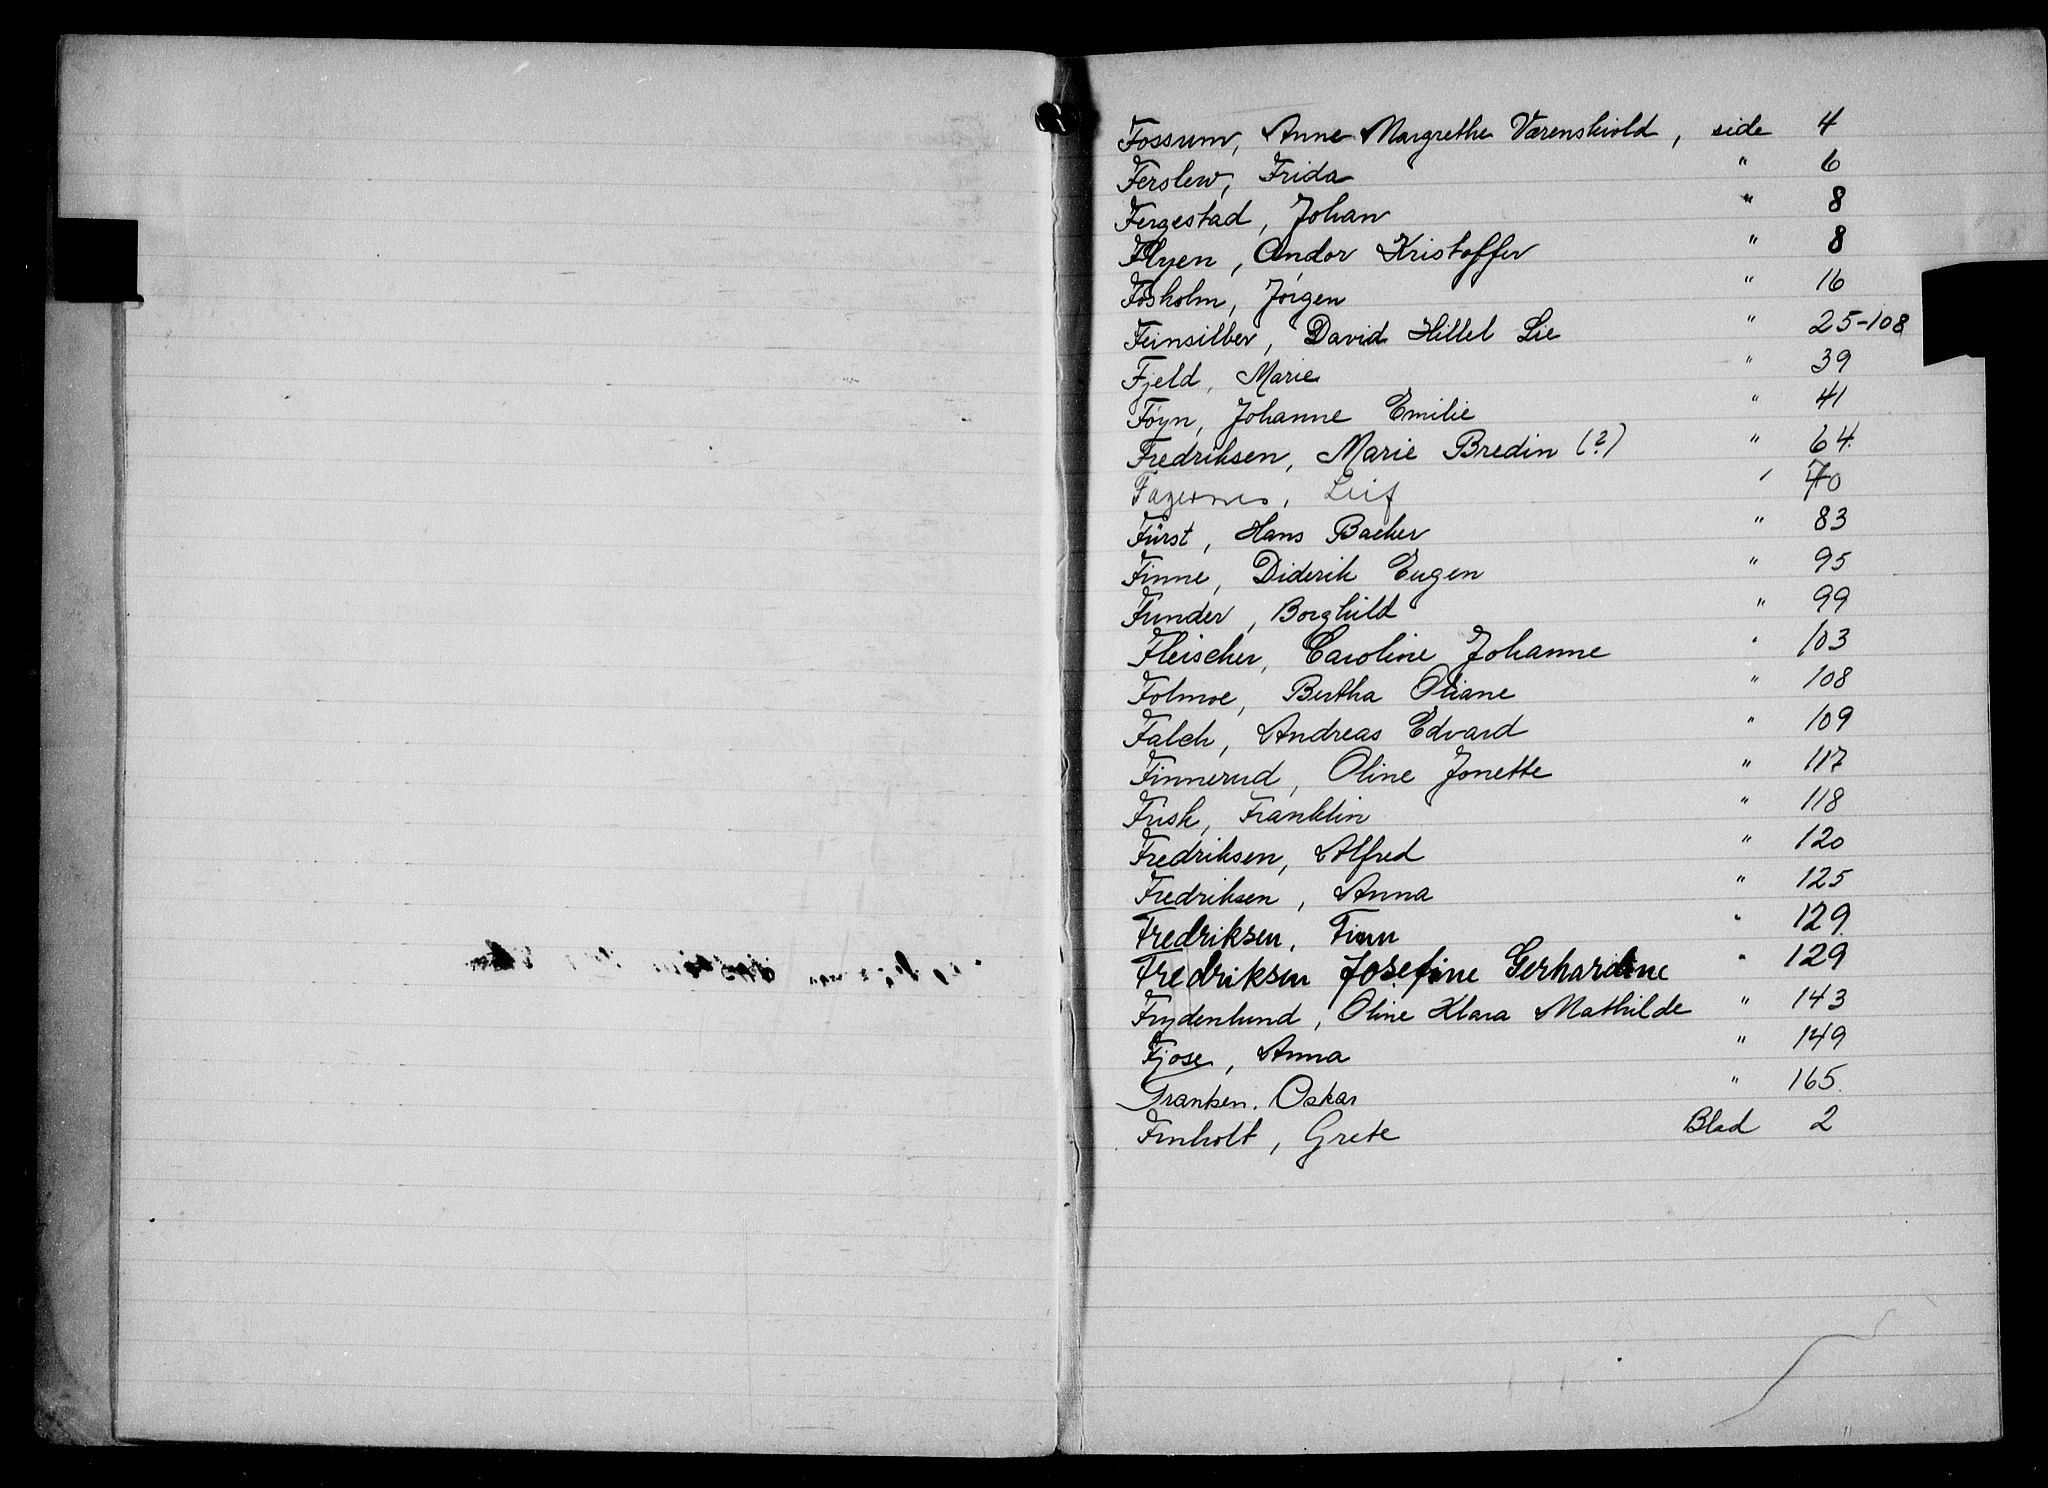 Fossum, Anne Margrethe Værenskiold, side 4
Ferslew, Frida " 6
Fergestad, Johan " 8
Flyen, Andor Kristoffer " 8
Fosholm, Jørgen " 16
Feinsilber, David Hillel Lie " 25-108
Fjeld, Marie " 39
Føyn, Johanne Emilie " 41
Fredriksen, Marie Bredin (?) " 64.
Fagernes, Leif ' 70
Fürst, Hans Bacher " 83
Finne, Diderik Eugen " 95
Funder, Borghild " 99
Fleischer, Caroline Johanne " 103
Folmoe, Bertha Oliane " 108
Falch, Andreas Edvard " 109
Finnerud, Oline Jonette " 117
Frisk, Franklin " 118
Fredriksen, Alfred " 120
Fredriksen, Anna " 125
Fredriksen, Finn " 129
Fredriksen Josefine Gerhardine " 129
Frydenlund, Oline Klara Mathilde " 143
Fjose, Anna " 149
Frantsen. Oskar " 165.
Finholt, Grete Blad 2